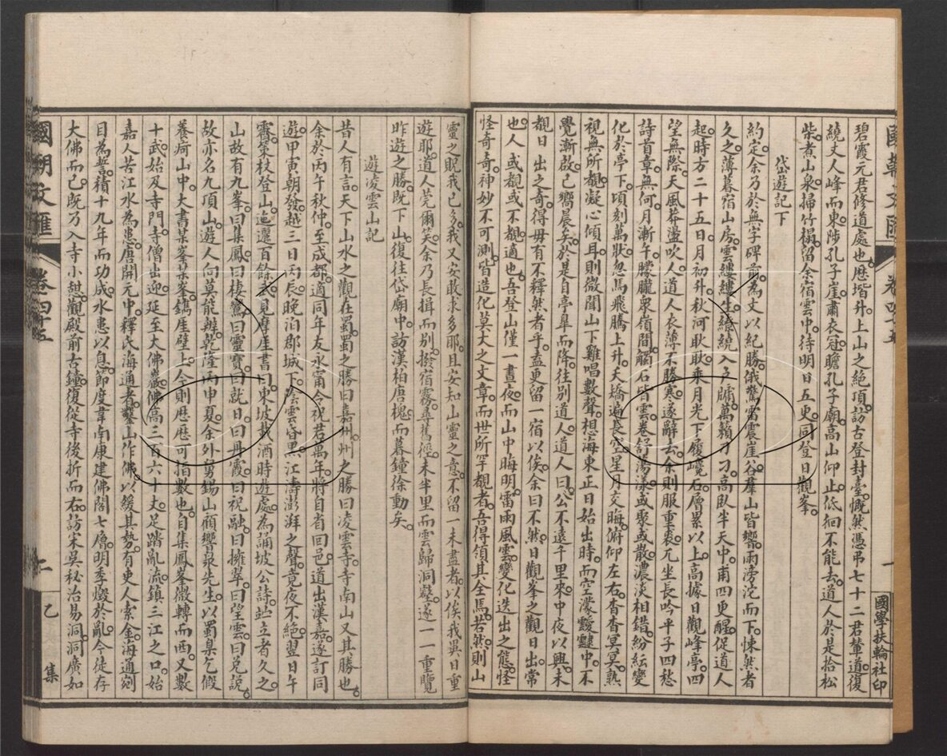 國朝文匯
卷四十五
一
國學扶輪社印
碧霞元君修道處也歷堦升上山之絕頂訪古登封臺慨然憑弔七十二君輦道復
繞丈人峰而東陟孔子崖肅衣冠瞻孔子廟高山仰止低徊不能去道人於是拾松
柴煮山泉掃竹榻留余宿雲中待明日五更同登日觀峯
岱遊記下
約定余乃於無字碑前為文以紀勝俄驚雷震崖谷羣山皆響雨滂沱而下悚然者
久之薄暮宿山房雲縷縷生繚繞入戶牖萬籟刁刁高臥半天中甫四更醒促道人
起時方二十五日月初升秋河耿耿乘月光下履巉石層累以上高據日觀峰亭四
望無際天風莽盪吹人道人衣薄不勝寒遂辭去余則服重裘兀坐長吟平子四愁
詩首章無何月漸午朦朧衆嶺間觸石皆雲卷舒瀁漾或聚或散濃淡相錯紛紜變
化於亭下頃刻萬狀忽馬飛騰上升夭矯遍長空星月交晦俯仰左右杳杳冥冥熟
視無所覩凝心傾耳則微聞山下雞唱數聲想海東正日始出時而空濛靉靆中不
覺漸啟已嚮晨矣於是自亭阜而降往別道人道人曰公不遠千里來中夜以興未
覩日出之奇得毋有不釋然者乎盍更留一宿以俟余曰不然日觀峯之觀日出常
也人或覩或不覩適也吾登山僅一晝夜而山中晦明雷雨風雲變化迭出之態怪
怪奇奇神妙不可測皆造化莫大之文章而世所罕覩者吾得領其全馬若然則山
靈之貺我已多我又安敢求多耶且安知山靈之意不留一未盡者以俟我異日重
遊耶道人莞爾笑余乃長揖而别撥宿霧尋舊徑未半里而雲歸洞壑遂一一重覽
昨遊之勝既下山復往岱廟中訪漢柏唐槐而暮鐘徐動矣
遊凌雲山記
昔人有言天下山水之觀在蜀蜀之勝曰嘉州州之勝曰凌雲寺寺南山又其勝也
余於丙午秋仲至成都適同年友永甯令祝君萬年將自省回邑道出漢嘉遂訂同
遊甲寅朝發越三日丙辰晚泊郡城下陰雲昏黑江濤澎湃之聲竟夜不絕翌日午
霽策杖登山迤邐百餘步見摩崖書蘇東坡載酒時遊處為誦坡公詩竚立者久之
山故有九峯曰集鳳曰棲鸞曰靈寶曰就日曰丹霞曰祝融曰擁翠曰望雲曰兌說
故亦名九頂山遊人向莫能辨乾隆丙申夏余外舅錫山顧響泉先生以蜀臬乞假
養疴山中大書某峯某峯鐫崖壁上今則歷歷可指數也自集鳳峯儆轉而西又數
十武始及寺門寺僧出迎延至大佛巖佛高三百六十丈足踏亂流鎮三江之口始
嘉人苦江水為患唐開元中釋氏海通者鑿山作佛以緩其勢有吏人索金海通剜
目為誓積十九年而功成水患以息節度韋南康建佛閣七層明季燬於亂今佳存
大佛而已既乃入寺小憩觀殿前古鐘復從寺後折而右訪宋吳秘治易洞洞廣如
國朝文匯
卷四十五
二
乙
集